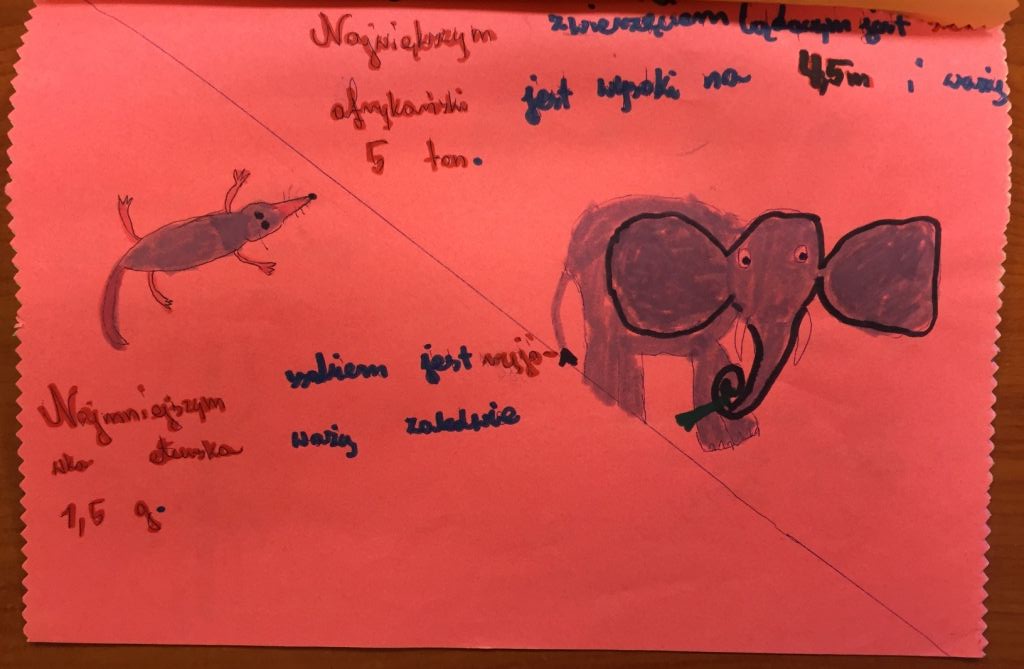 Największym zwierzęciem lądowym jest
afrykański jest wysoki na 4,5m i waży
5 ton.
Najmniejszym ssakiem jest ryjó-
wka etruska waży zaledwie
1,5 g.